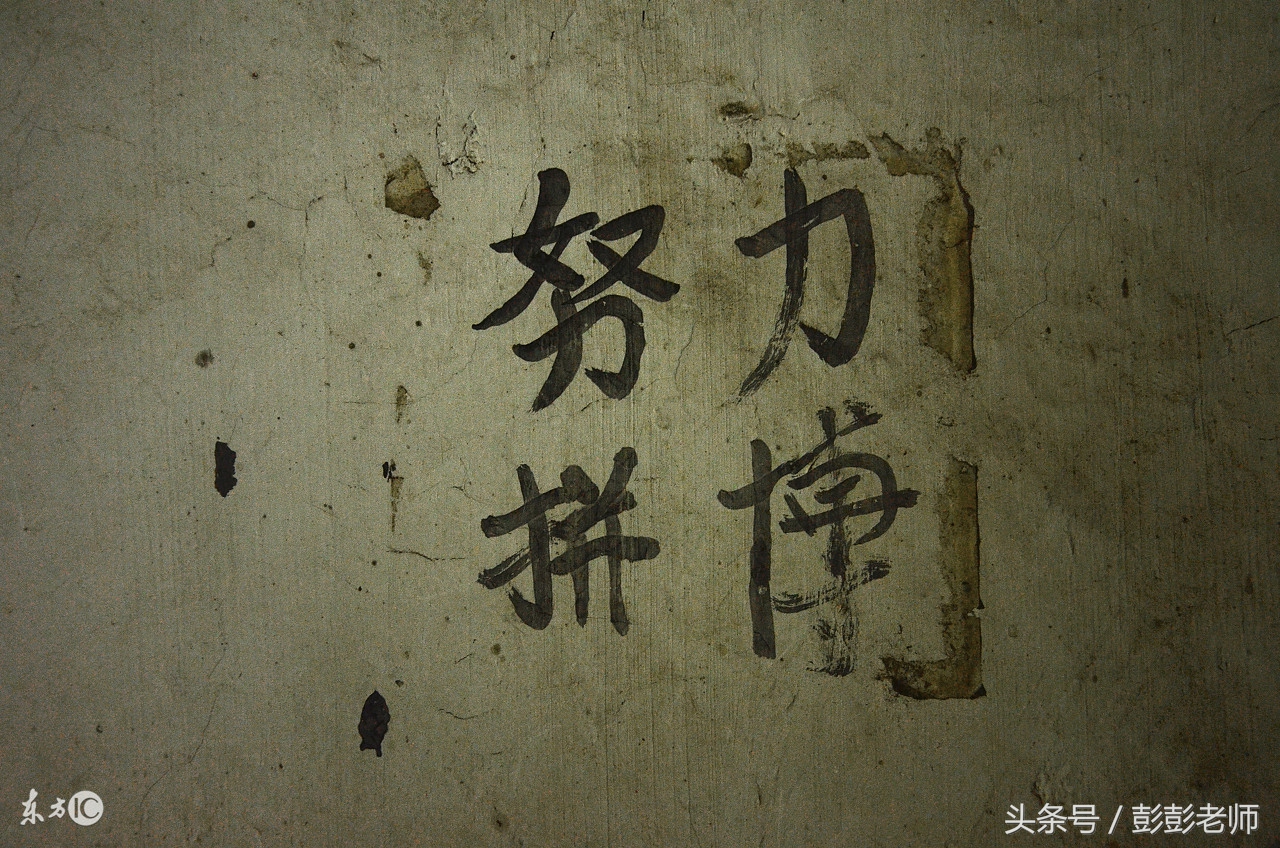 努力
拼博
东方IC
头条号 / 彭彭老师